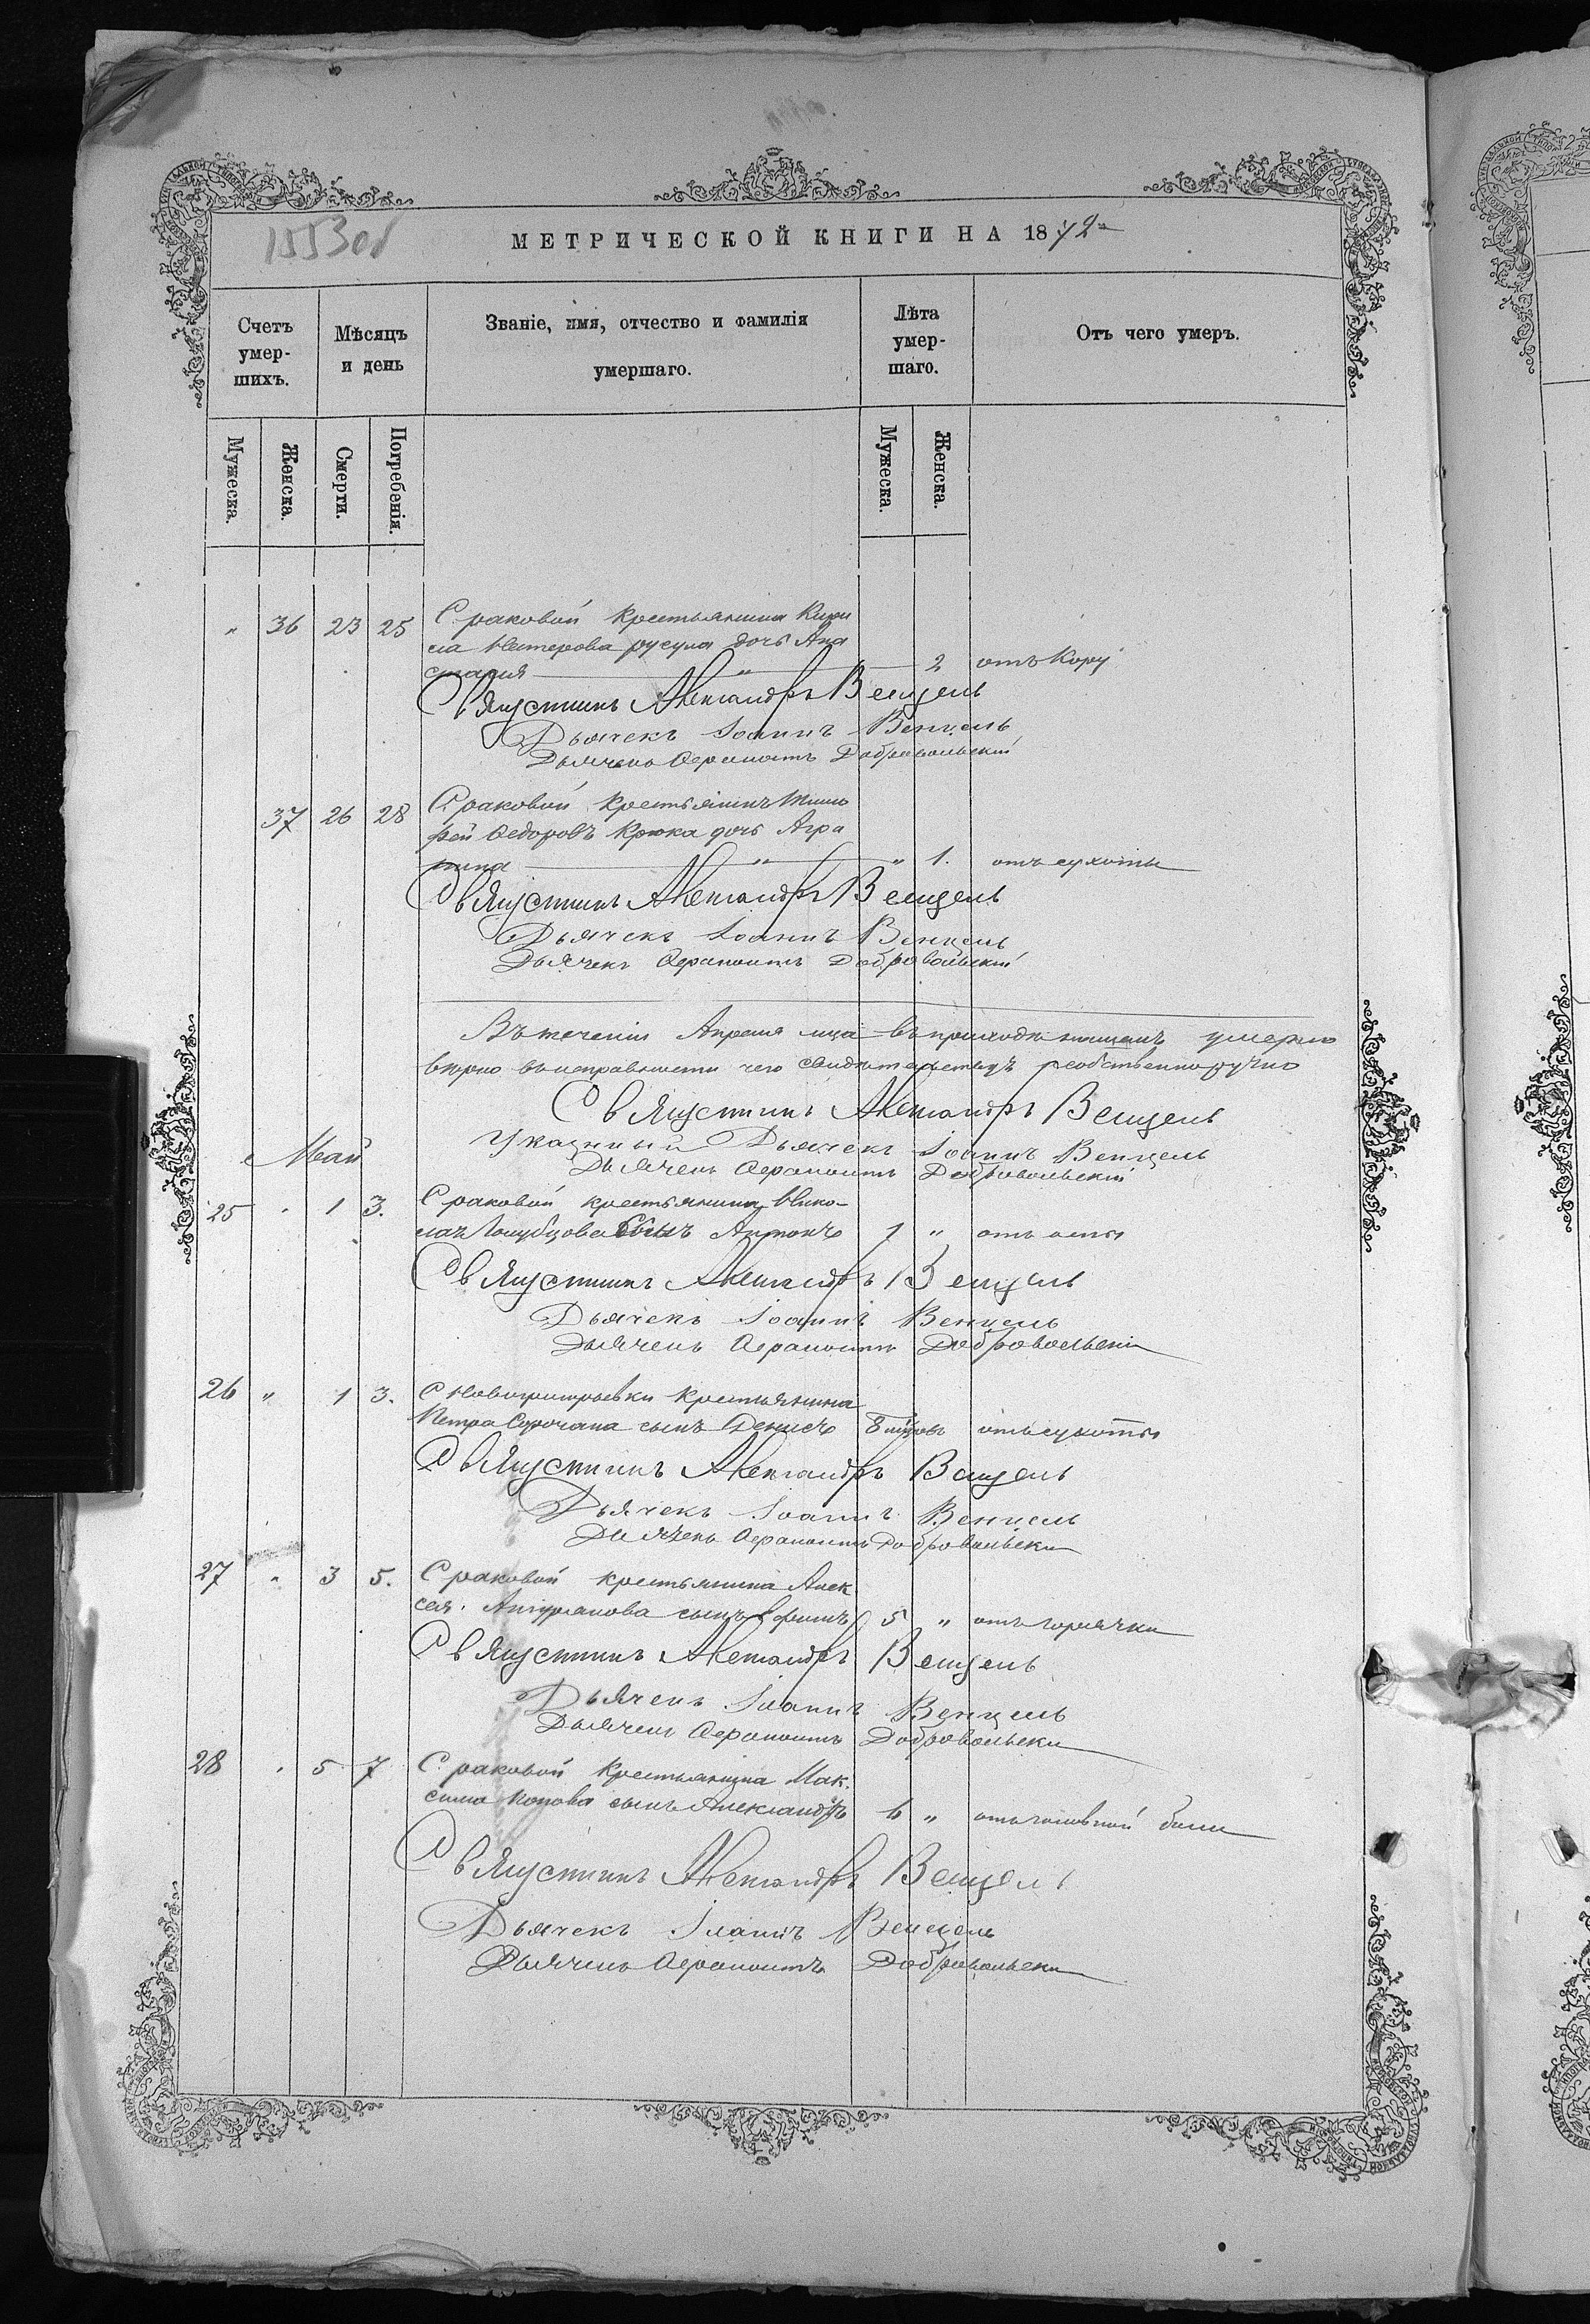 1553об
МЕТРИЧЕСКОЙ КНИГИ НА 1872
Счетъ умер-шихъ.
Мѣсяцъ и день
Званіе, имя, отчество и фамилія умершаго.
Лѣта умер-шаго.
Отъ чего умеръ.
Мужеска.
Женска.
Смерти.
Погребенія.
Мужеска.
Женска.
" 36 23 25 С. раковой крестьянина Кири
ла Нестерова дочь Ана
стасія " 2 отъ Кору
Священникъ Александръ Венцель
Дьячекъ Іоаннъ Венцель
Дьячекъ Ѳерапонтъ Добровольскій
37 26 28 С. раковой крестьянинъ Тимо
фей Ѳедоровъ Крюка дочь Агра
пина " " 1. отъ сухоты
Священникъ Александръ Венцель
Дьячекъ Іоаннъ Венцель
Дьячекъ Ѳерапонтъ Добровольскій
Въ теченіи Апреля мца въ приходѣ нашемъ умерло
вѣрно въ исправности чего свидѣтельствуемъ
Священникъ Александръ Венцель
Указный Дьячекъ Іоаннъ Венцель
Дьячекъ Ѳерапонтъ Добровольскій
Май
25 " 1 3. С раковой крестьянина Нико-
лая Голубцова Сынъ Антонъ 1 " отъ оспы
Священникъ Александръ Венцель
Дьячекъ Іоаннъ Венцель
Дьячекъ Ѳерапонтъ Добровольскій
26 " 1 3. С крестьянина
Петра Сорочана сынъ Денисъ 8 отъ сухоты
Священникъ Александръ Венцель
Дьячекъ Іоаннъ Венцель
Дьячекъ Ѳерапонтъ Добровольскій
27 " 3 5. С раковой крестьянина Алек
сея сынъ 5 " отъ горячки
Священникъ Александръ Венцель
Дьячекъ Іоаннъ Венцель
Дьячекъ Ѳерапонтъ Добровольскій
28 " 5 7 С. раковой Крестьянина Мак
сима Попова сынъ Александръ 6 " отъ головной боли
Священникъ Александръ Венцель
Дьячекъ Іоаннъ Венцель
Дьячекъ Ѳерапонтъ Добровольскій